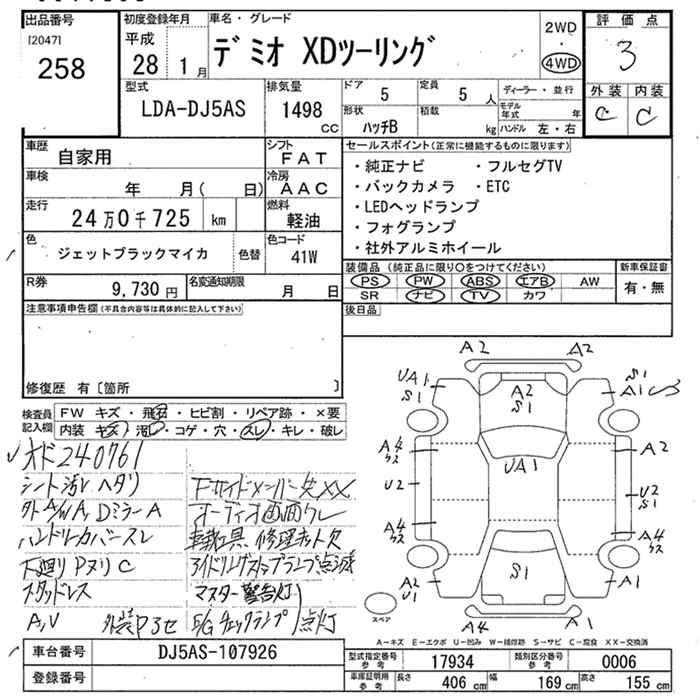 出品番号 初度登録年月 車名・グレード 評価点
[2047] 平成 2WD
258 28 1月 デミオ XDツーリング ・ 3
4WD
型式 排気量 ドア 定員 ディーラー・並行 外装 内装
LDA-DJ5AS 1498 cc 5 5人 モデル年式 年 C C
形状 積載
ハッチB kg ハンドル 左・右
車歴 自家用 シフト FAT セールスポイント(正常に機能するものに限ります)
車検 年 月( 日) 冷房 AAC ・純正ナビ ・フルセグTV
・バックカメラ ・ETC
走行 24万0千725 km 燃料 軽油 ・LEDヘッドランプ
・フォグランプ
色 ジェットブラックマイカ 色替 色コード 41W ・社外アルミホイール
R券 9,730円 名変通知期限 月 日 装備品 (純正品に限り○をつけてください) 新車保証書
PS PW ABS エアB AW 有・無
SR ナビ TV カワ
注意事項申告欄(不具合内容等は具体的に記入して下さい) 後日品
修復歴 有〔箇所 〕
検査員記入欄 FW キズ・飛石・ヒビ割・リペア跡・×要
内装 キズ・汚レ・コゲ・穴・スレ・キレ・破レ
オド240761
シート汚レ ヘタリ 下サイドメンバー先XX
外A,W,A, DミラーA オーディオ画面クレ
ハンドルカバースレ 車載工具 修理キット欠
下廻りPヌリC アイドリングストップランプ点滅
スタッドレス マスター警告灯
A,V 外装P3セ E/Gチェックランプ 点灯
A2 A2
UA1 S1 A2 S1 S1 A1
A4 クス UA1 A2
U2 U2 S1
A4 クス A4 クス
A2 U1 S1 A1
スペア A4 A1
A-キズ E-エクボ U-凹み W-補修跡 S-サビ C-腐食 XX-交換済
車台番号 DJ5AS-107926 型式指定番号 参考 17934 類別区分番号 参考 0006
登録番号 車庫証明用 参考 長さ 406cm 幅 169cm 高さ 155cm